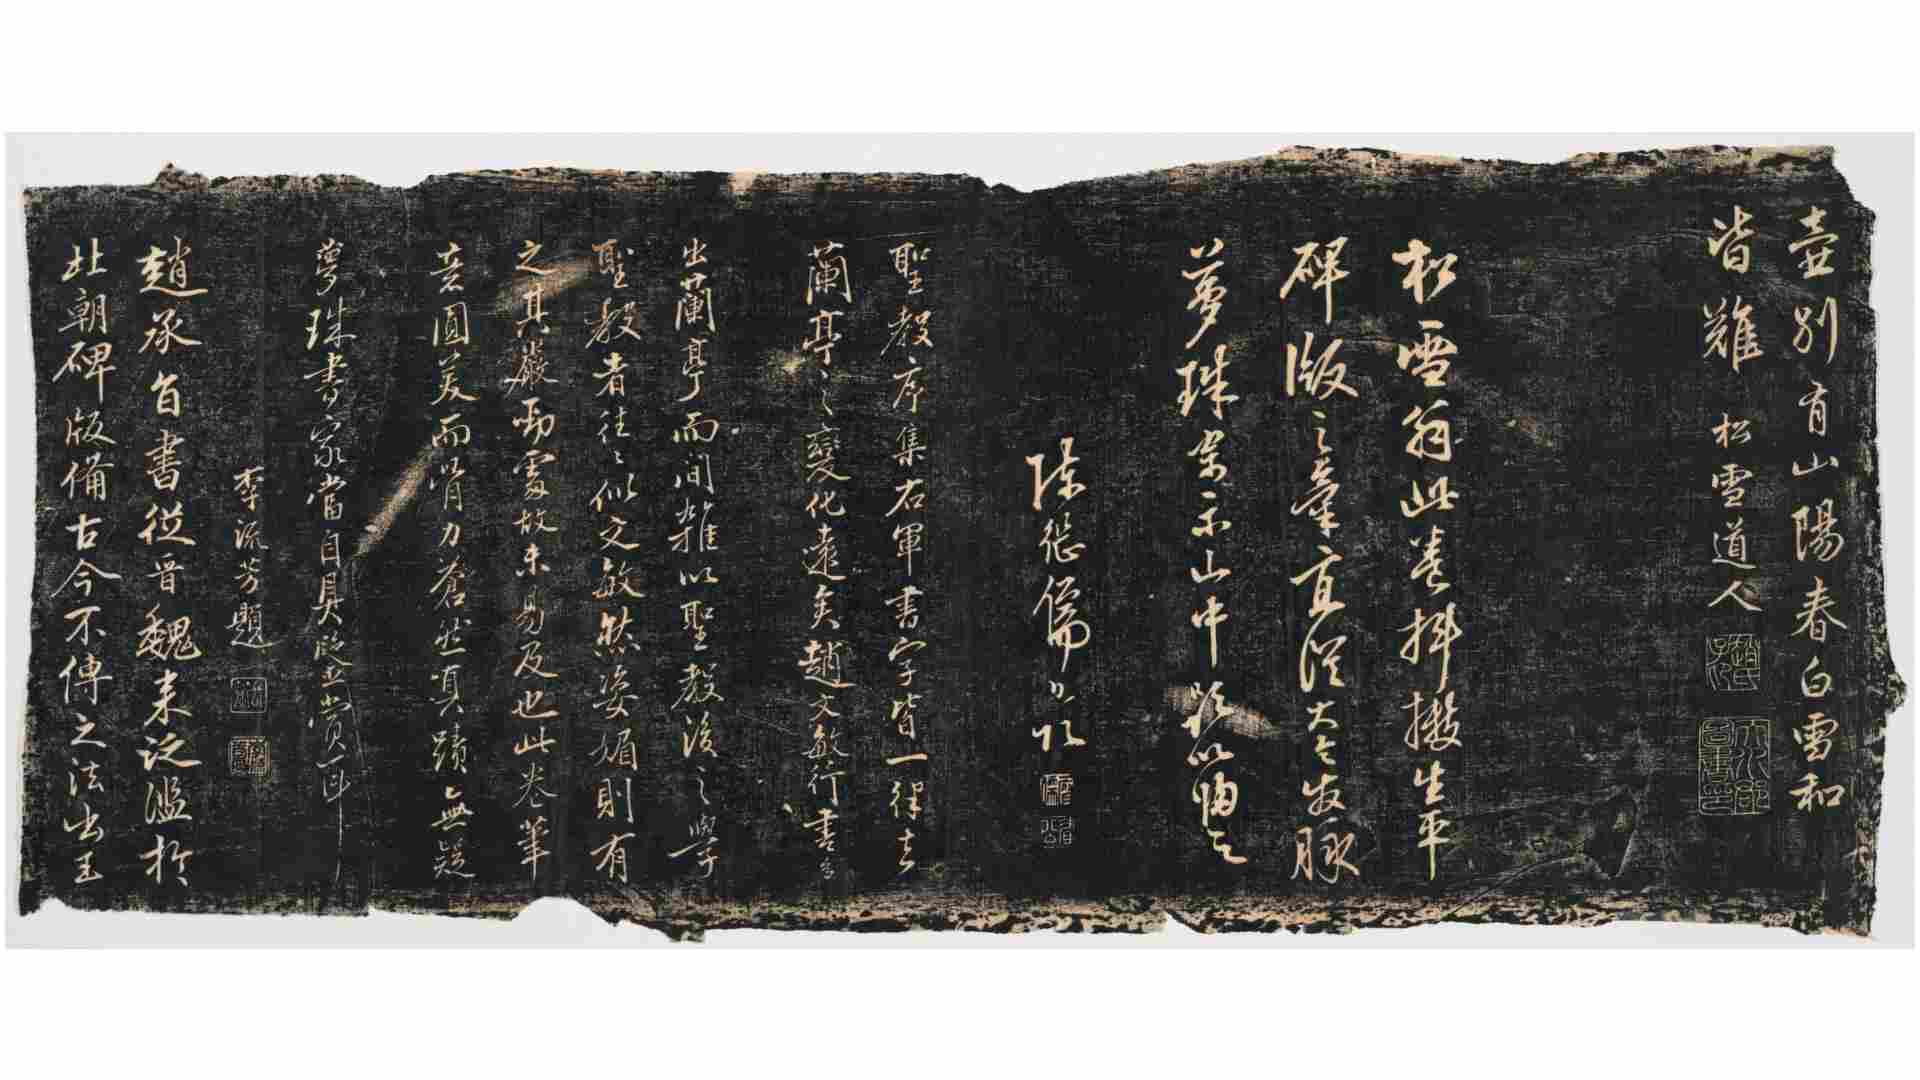 壺別有山陽春白雪和
皆難 松雪道人
趙氏子昂
大雅
松雪翁此卷抖擻生平
碑版之筆直從大令發脉
夢珠宗示山中題以歸之
陳繼儒
聖教序集右軍書字皆一從
蘭亭之變化遠矣趙文敏行書多
出蘭亭而間雜以聖教後之學
聖教者往々似文敏然姿媚則有
之其嚴勁處故未易及也此卷筆
意圓美而骨力蒼然真蹟無疑
夢珠書家當自具正賞耳
李流芳題
趙承旨書從晉魏来泛濫於
北朝碑版備古今不傳之法出王